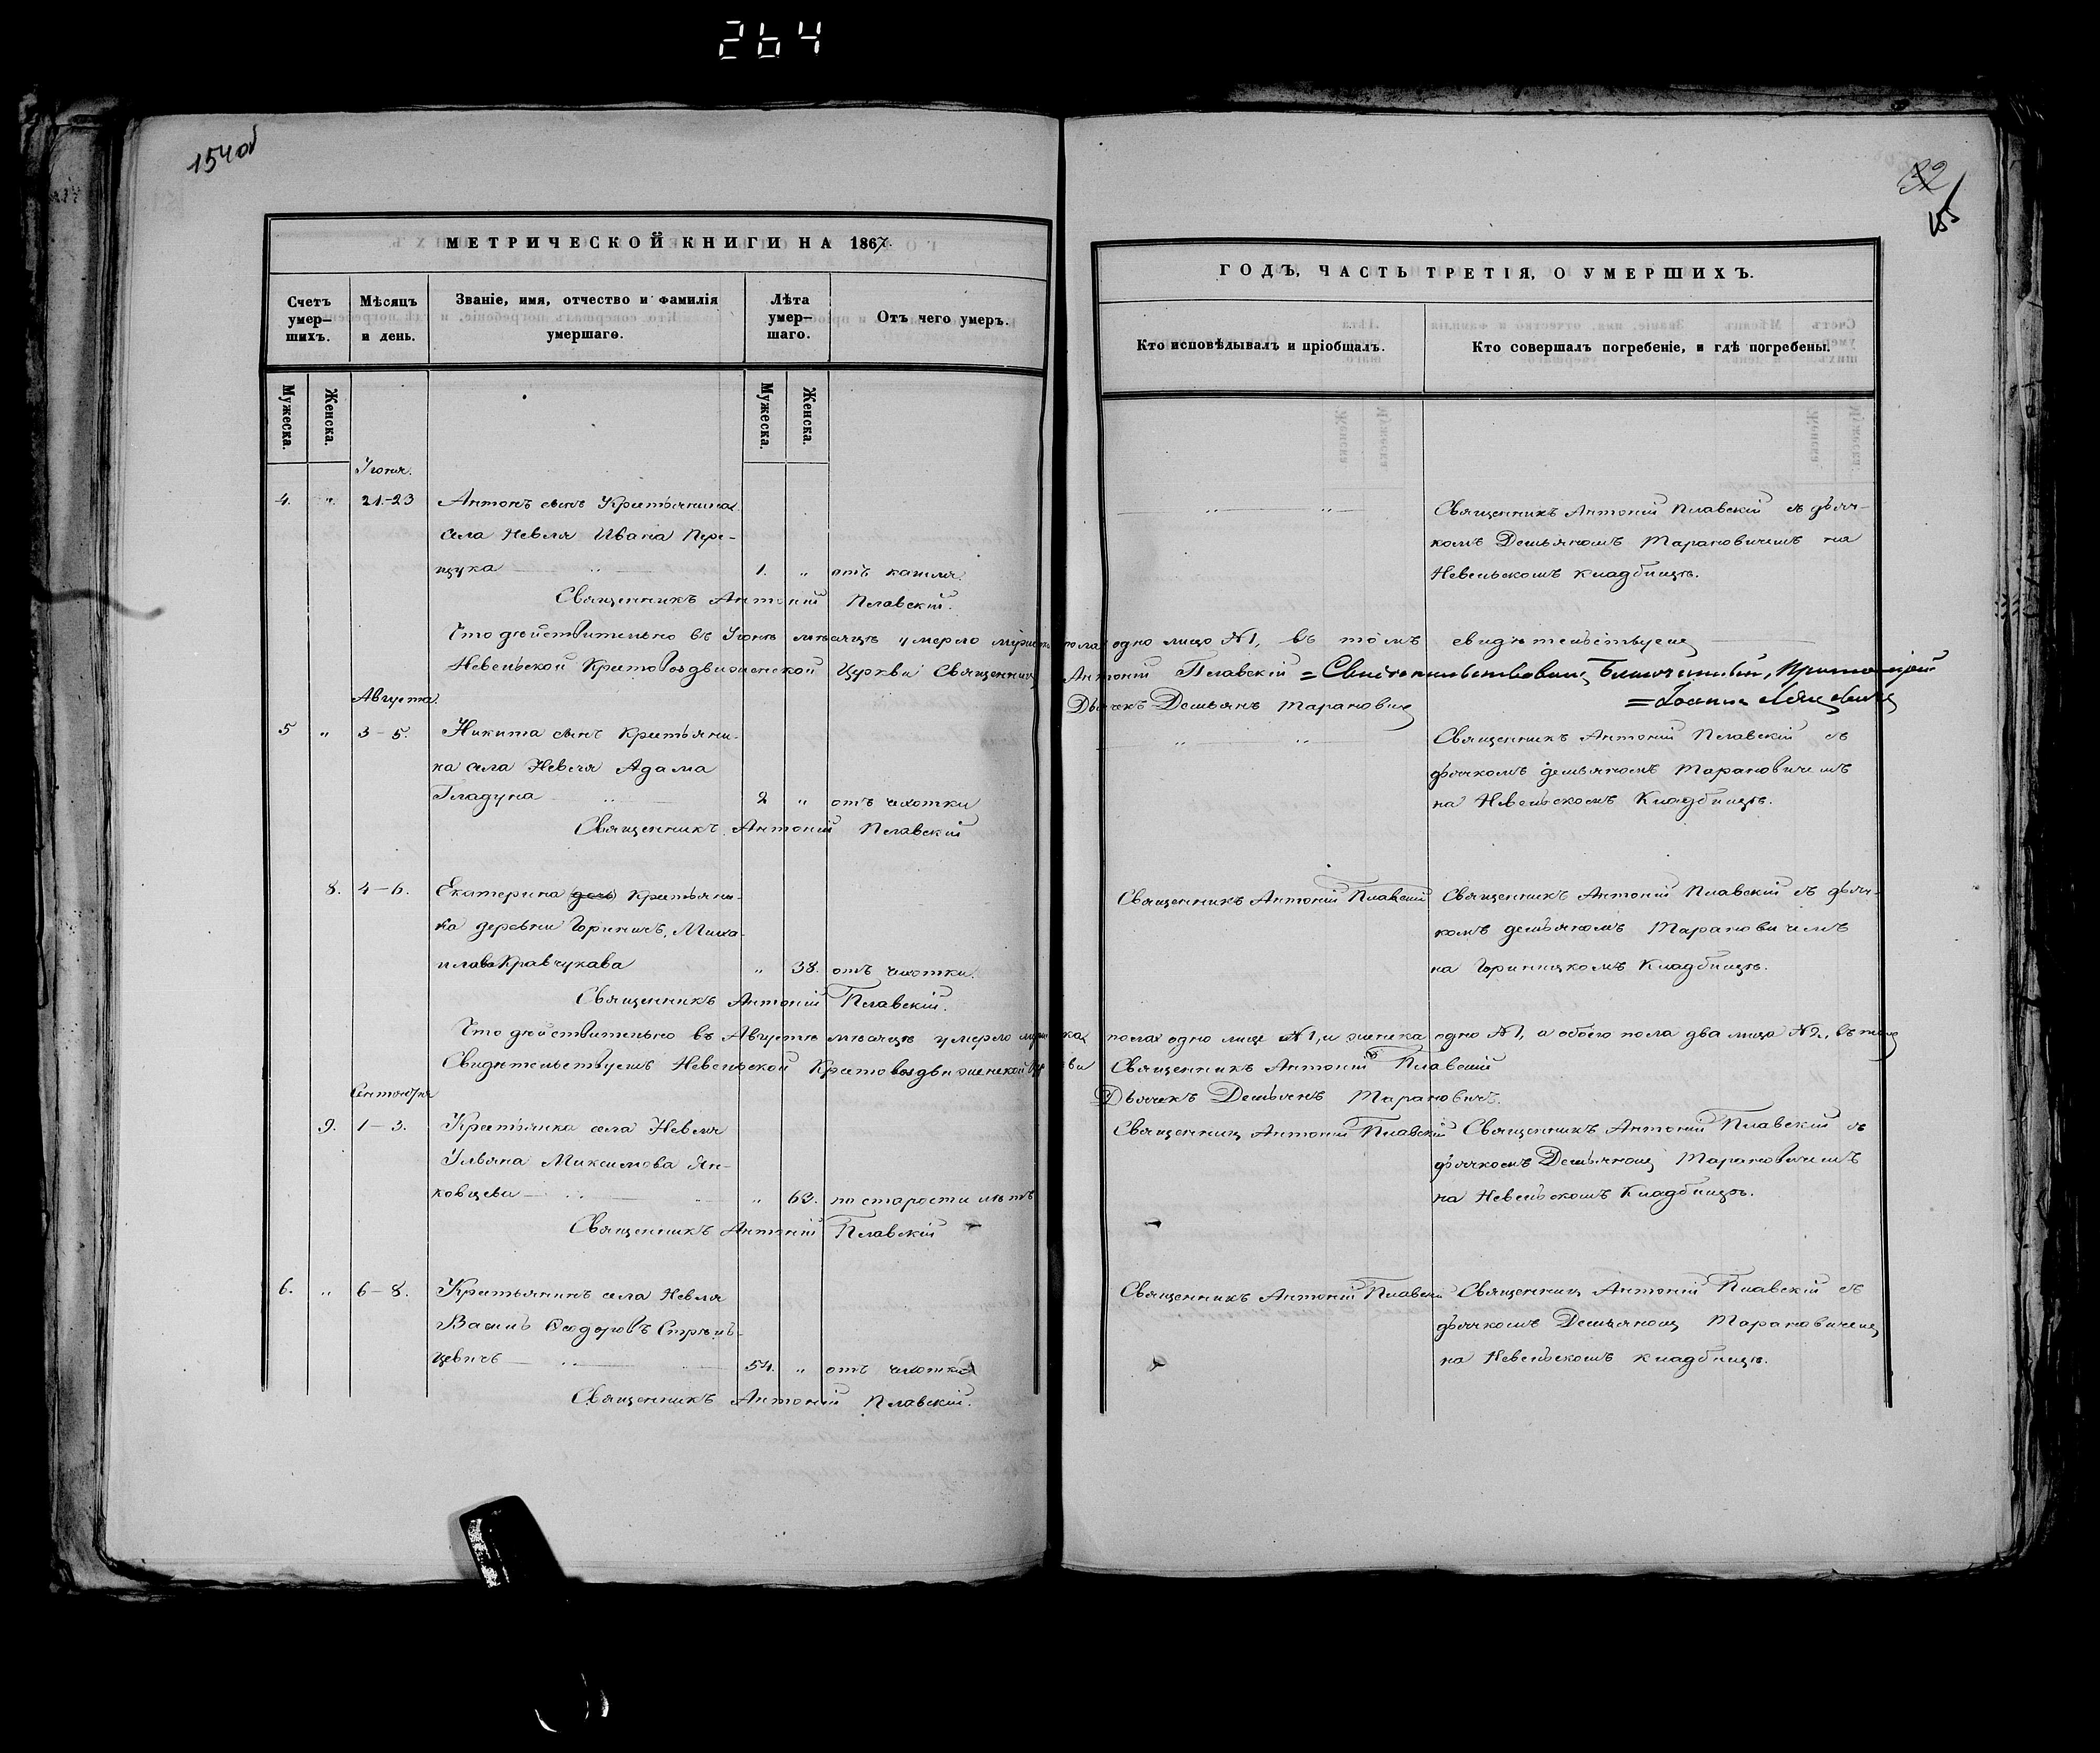 264
154об
32
155
МЕТРИЧЕСКОЙ КНИГИ НА 1867.
Счетъ умер-шихъ.
Мѣсяцъ и день.
Званіе, имя, отчество и фамилія умершаго.
Лѣта умер-шаго.
Отъ чего умеръ.
Мужеска.
Женска.
Мужеска.
Женска.
Іюня.
4. " 21-23 Антонъ сынъ Крестьянина
села Невеля Ивана Пере-
щука 1. " отъ кашля.
Священникъ Антоній Плавскій.
Что дѣйствительно въ Іюнѣ мѣсяцѣ умерло мужеска пола одно лицо №1, въ томъ свидѣтельствуемъ
Невельской Крестовоздвиженской Церкви Священникъ Антоній Плавскій =
Августа. Дьячекъ Демьянъ Тарановичъ
5 " 3-5. Никита сынъ Крестьяни-
на села Невеля Адама
Гладуна 2 " отъ чахотки
Священникъ Антоній Плавскій
8. 4-6. Екатерина Крестьян-
ка деревни Горничъ, Миха-
илова Кравчукова " 38. отъ чахотки.
Священникъ Антоній Плавскій.
Что дѣйствительно въ Августѣ мѣсяцѣ умерло мужеска пола одно лице №1, и женска одно №1, а обоего пола два лица №2, въ томъ
Свидѣтельствуемъ Невельской Крестовоздвиженской Церкви Священникъ Антоній Плавскій
Сентября Дьячекъ Демьянъ Тарановичъ.
9. 1-3. Крестьянка села Невеля
Ульяна Максимова Ян-
ковцева " 63. по старости лѣтъ
Священникъ Антоній Плавскій
6. " 6-8. Крестьянинъ села Невеля
Василь Ѳеодоровъ Стрель-
цевичъ 54. " отъ чахотки
Священникъ Антоній Плавскій.
ГОДЪ, ЧАСТЬ ТРЕТІЯ, О УМЕРШИХЪ.
Кто исповѣдывалъ и пріобщалъ.
Кто совершалъ погребеніе, и гдѣ погребены.
" "
Священникъ Антоній Плавскій съ дьяч-
комъ Демьяномъ Тарановичемъ на
Невельскомъ кладбищѣ.
" "
Священникъ Антоній Плавскій съ
дьячкомъ Демьяномъ Тарановичемъ
на Невельскомъ Кладбищѣ.
Священникъ Антоній Плавскій
Священникъ Антоній Плавскій съ дьяч-
комъ Демьяномъ Тарановичемъ
на Горничскомъ Кладбищѣ.
Священникъ Антоній Плавскій
Священникъ Антоній Плавскій съ
дьячкомъ Демьяномъ Тарановичемъ
на Невельскомъ Кладбищѣ.
Священникъ Антоній Плавскій
Священникъ Антоній Плавскій съ
дьячкомъ Демьяномъ Тарановичемъ
на Невельскомъ кладбищѣ.